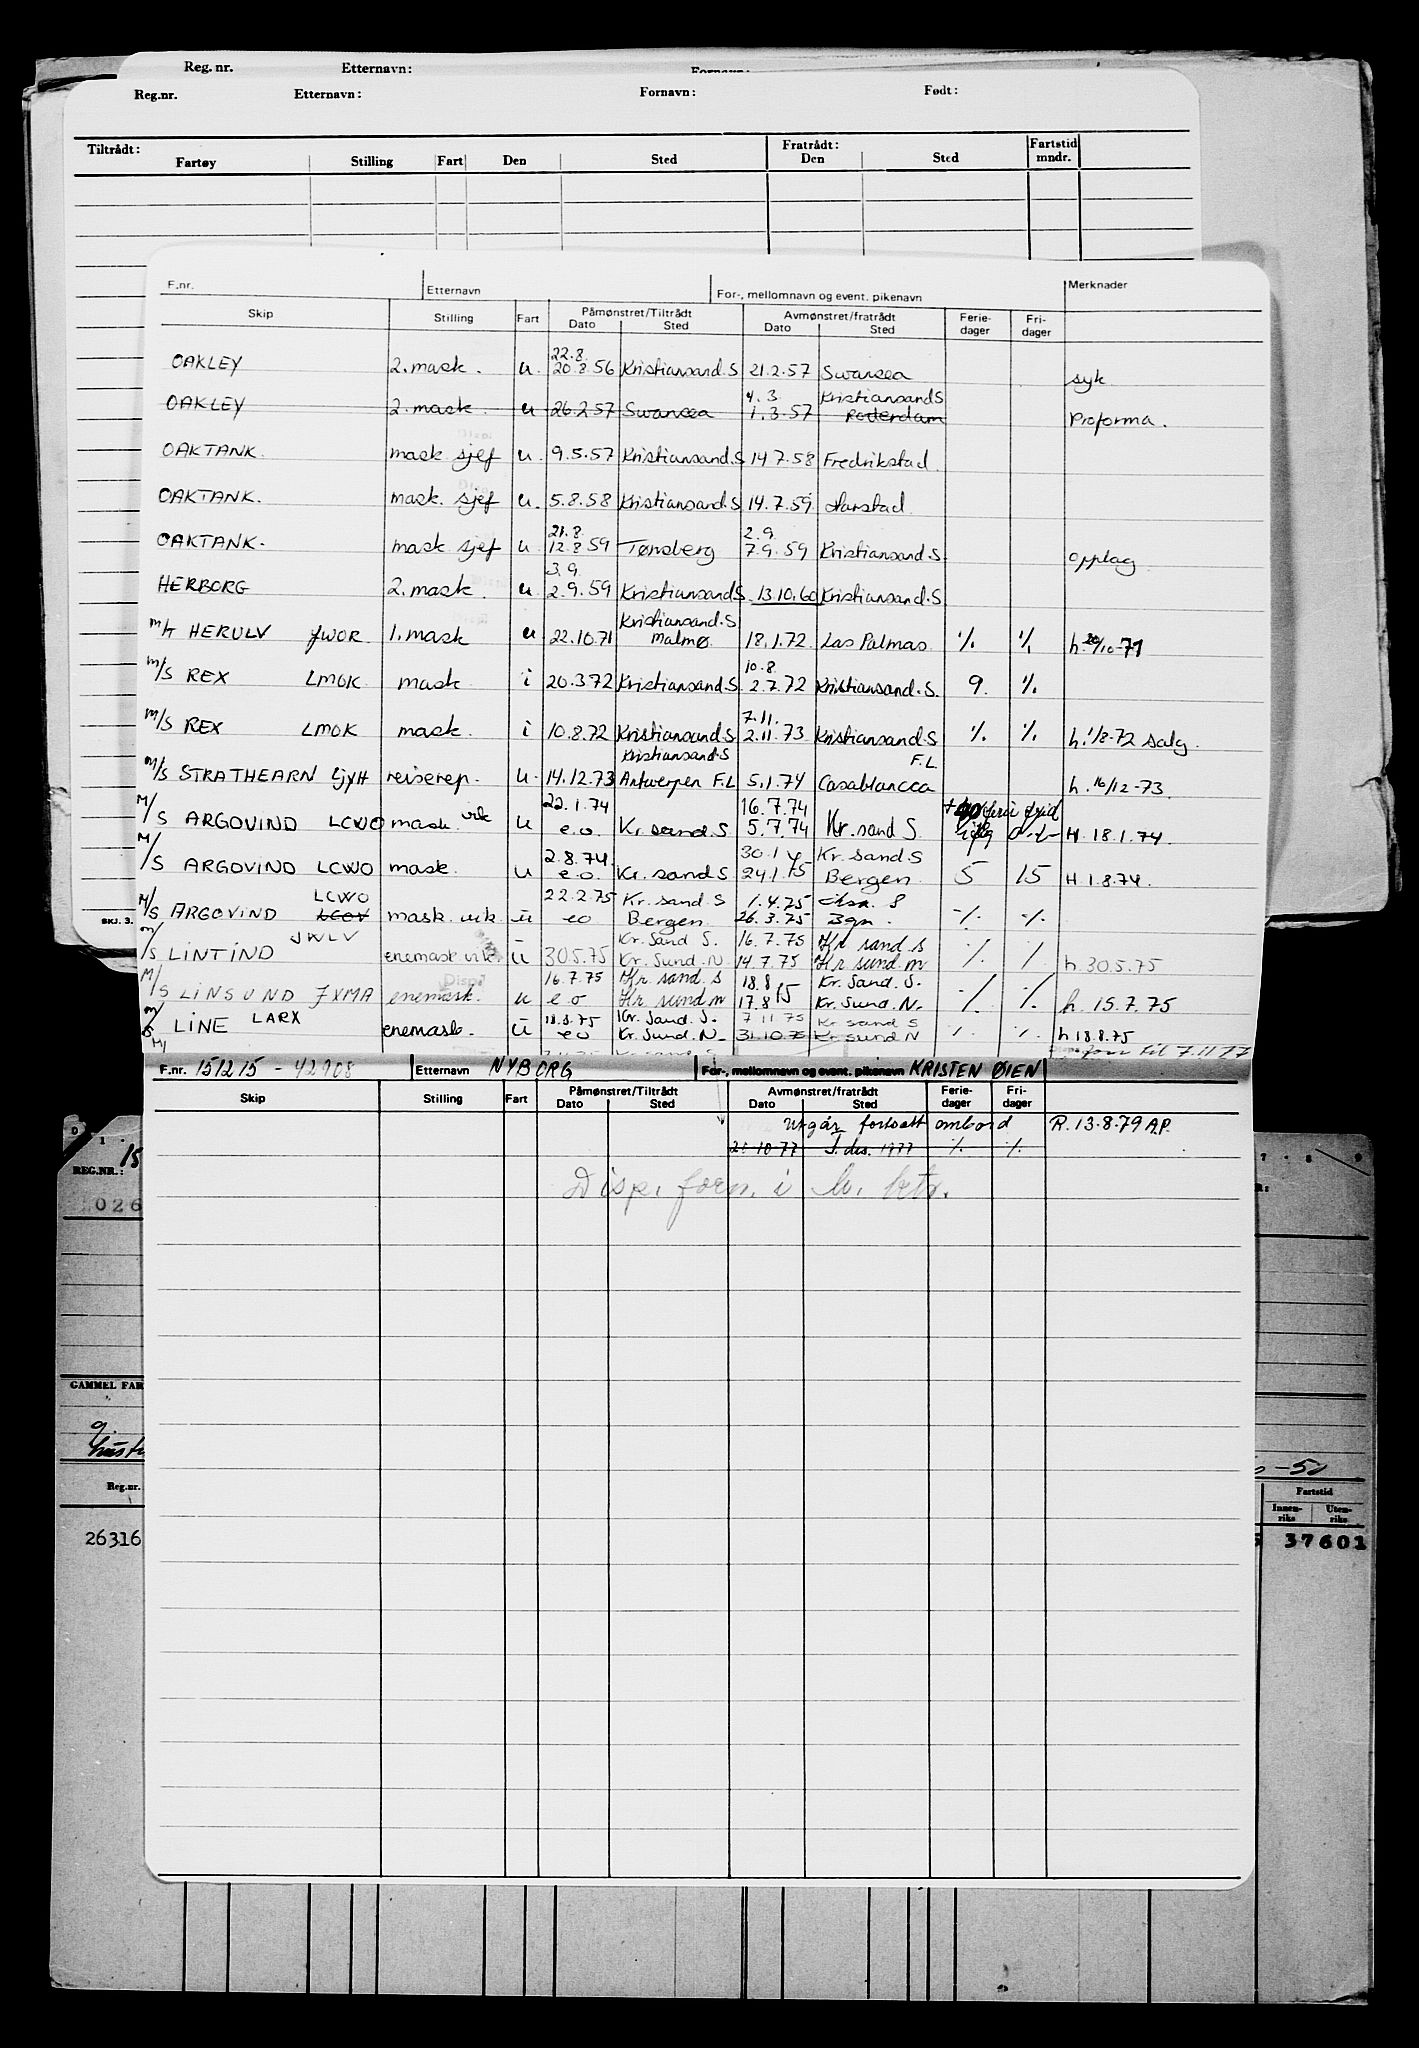 Reg. nr. Etternavn:
Reg.nr. Etternavn: Fornavn: Født:
Tiltrådt: Fratrådt: Fartstid
Fartøy Stilling Fart Den Sted Den Sted mndr.
F.nr. Etternavn For-, mellomnavn og event. pikenavn Merknader
Skip Stilling Fart Påmønstret/Tiltrådt Avmønstret/fratrådt Ferie- Fri-
Dato Sted Dato Sted dager dager
22.8.
OAKLEY 2. mask. u. 20.8.56 Kristiansand.S 21.2.57 Swansea syk
4.3. Kristiansand S
OAKLEY 2. mask. u 26.2.57 Swansea 1.3.57 Rotterdam Proforma.
OAKTANK. mask sjef u. 9.5.57 Kristiansand.S 14.7.58 Fredrikstad.
OAKTANK. mask. sjef u. 5.8.58 Kristiansand.S 14.7.59 Harstad.
21.8. 2.9.
OAKTANK. mask sjef u. 12.8.59 Tønsberg 7.9.59 Kristiansand.S opplag
3.9.
HERBORG 2. mask. u 2.9.59 Kristiansand S. 13.10.60 Kristiansand.S
Kristiansand.S
M/T HERULV JWOR 1. mask u 22.10.71 Malmø 18.1.72 Las Palmas ./. ./. h. 20/10-71
10.8.
M/S REX LMOK mask i 20.3.72 Kristiansand.S 2.7.72 Kristiansand.S. 9. ./.
7.11.
M/S REX LMOK mask. i 10.8.72 Kristiansand S 2.11.73 Kristiansand S ./. ./. h. 1/8-72 salg.
Kristiansand.S F.L.
M/S STRATHEARN LJYH reiserep. u. 14.12.73 Antwerpen F.L 5.1.74 Casablancca h. 16/12-73.
22.1.74 16.7.74
M/S ARGOVIND LCWO mask. vik u e.o. Kr sand S 5.7.74 Kr. sand S H 18.1.74.
2.8.74 30.1 Kr. sand S
M/S ARGOVIND LCWO mask. u e.o. Kr. sand S 24.1.75 Bergen 5 15 H 1.8.74.
LCWO 22.2.75 Kr. sand S 1.4.75
M/S ARGOVIND LCOV mask. vik u eo Bergen 26.3.75 Bgn. ./. ./.
JWLV Kr. Sand S. 16.7.75 Kr sand s
M/S LINTIND enemask vik. u 30.5.75 Kr. Sund. N 14.7.75 Kr sund n ./. ./. h. 30.5.75
Disp.
16.7.75 Kr sand. s 18.8 Kr. Sand. S.
M/S LINSUND JXMA enemask. u e o Kr sund n 17.8.75 Kr. Sund. N. ./. ./. h. 15.7.75
18.8.75 Kr. Sand. S. 7.11.75 Kr sand S
M/S LINE LARX enemask. u eo Kr. Sund. N. 31.10.75 Kr sund N ./. ./. h 18.8.75
til 7.11.77
SKJ. 3.
F.nr. 151215 - 42908 Etternavn NYBORG For-, mellomnavn og event. pikenavn KRISTEN ØIEN
Skip Stilling Fart Påmønstret/Tiltrådt Avmønstret/fratrådt Ferie- Fri-
Dato Sted Dato Sted dager dager
utgår fortsatt ombord R. 13-8-79 A.P.
10 77 des. 1977 ./. ./.
Disp. forn. i
REG.NR.: 15
026
GAMMEL FAR
Reg.nr. Fartstid
Innen-riks Uten-riks
26316 37601
-50